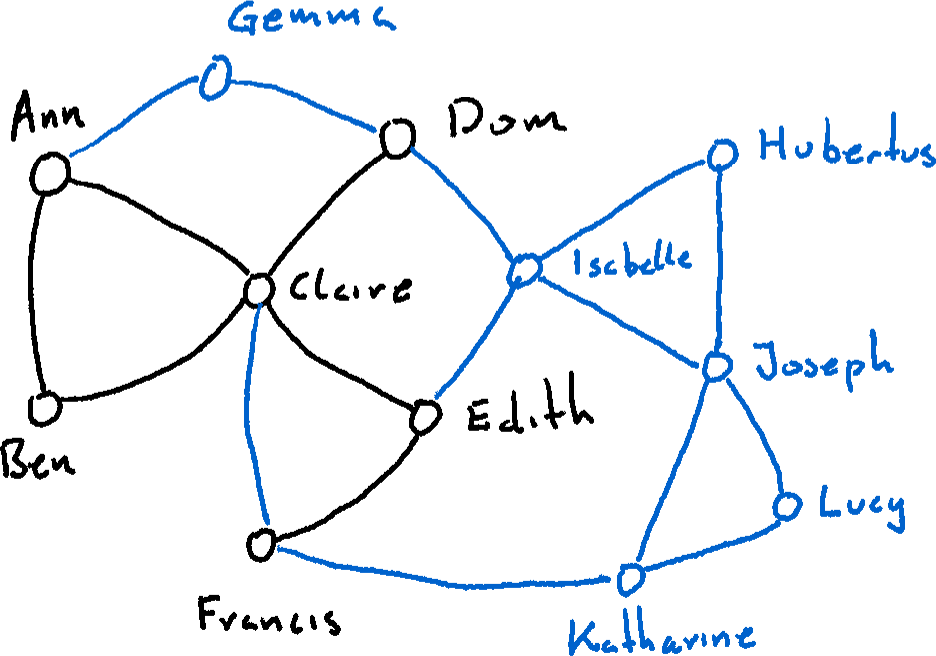 Gemma
Ann
Dom
Hubertus
Isabelle
Claire
Joseph
Edith
Ben
Lucy
Francis
Katharine